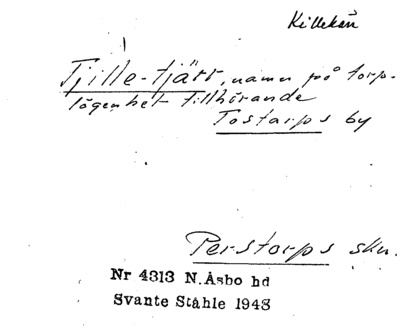 Killekärr
Tjille-tjärr, namn på torp-
lägenhet tillhörande
Tostarps by
Perstorps skn.
Nr 4313 N. Åsbo hd
Svante Ståhle 1948